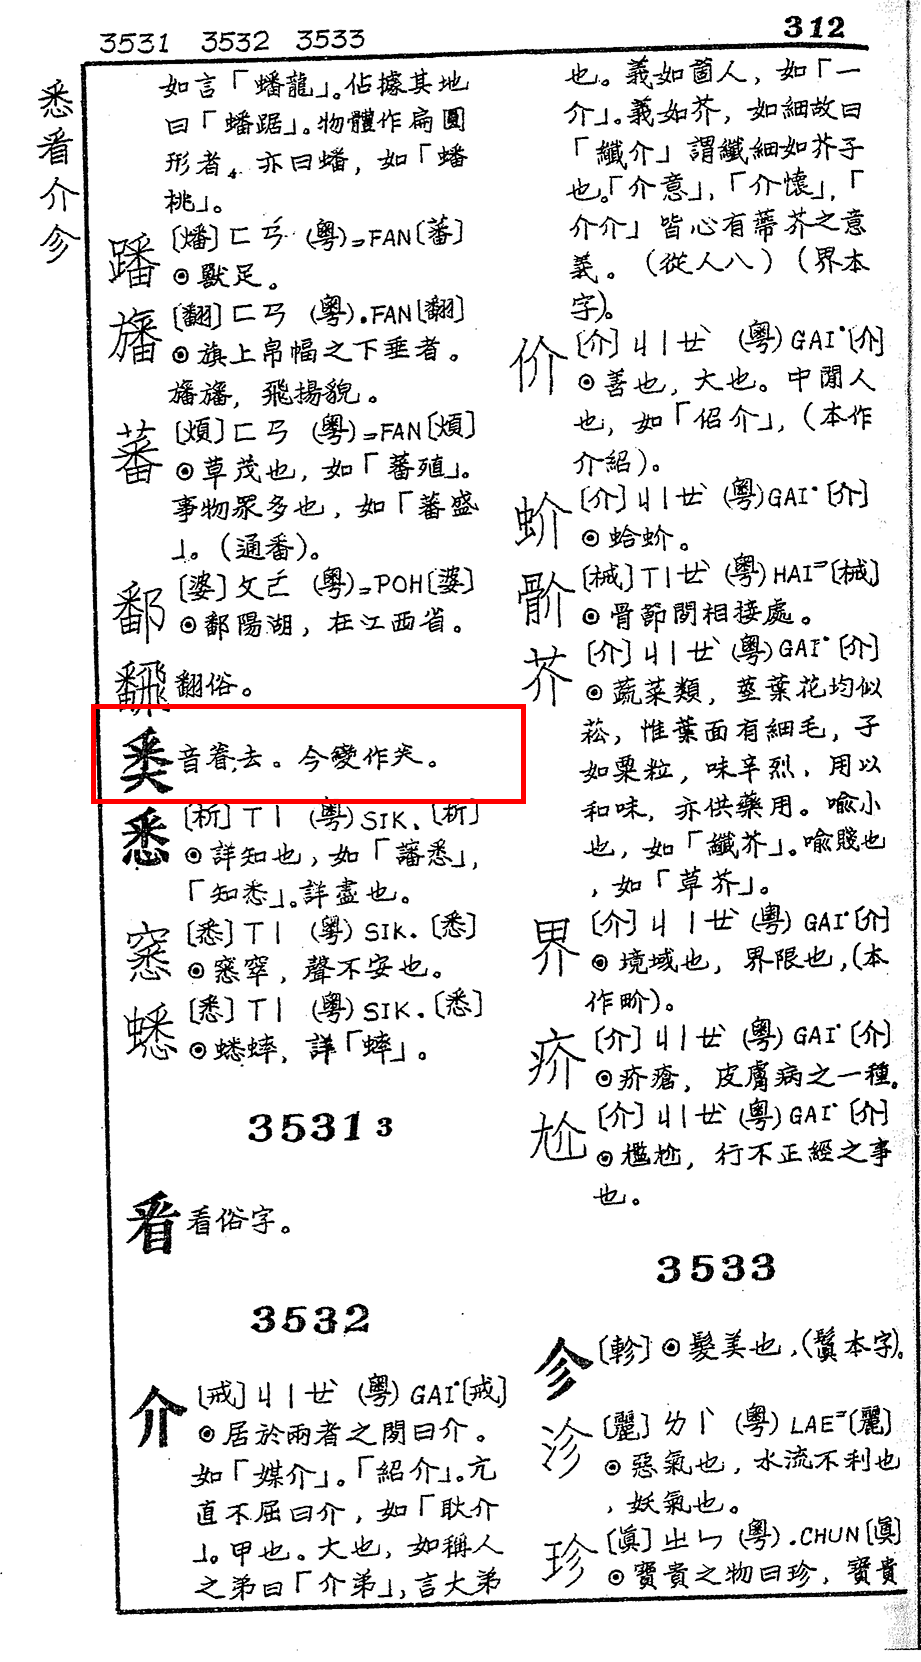 3531 3532 3533
312
悉看介㐱
如言「蟠龍」。佔據其地
曰「蟠踞」。物體作扁圓
形者,亦曰蟠,如「蟠
桃」。
蹯 [燔]ㄈㄢˊ (粵)₌FAN[蕃]
⊙獸足。
旛 [翻]ㄈㄢ (粵).FAN[翻]
⊙旗上帛幅之下垂者。
旛旛,飛揚貌。
蕃 [煩]ㄈㄢ (粵)₌FAN[煩]
⊙草茂也,如「蕃殖」。
事物眾多也,如「蕃盛
」。(通番)。
鄱 [婆]ㄆㄛˊ (粵)₌POH[婆]
⊙鄱陽湖,在江西省。
翻俗。
音眷,去。今變作𠔉。
悉 [析]ㄒㄧ (粵)SIK.[析]
⊙詳知也,如「審悉」,
「知悉」。詳盡也。
窸 [悉]ㄒㄧ (粵)SIK.[悉]
⊙窸窣,聲不安也。
蟋 [悉]ㄒㄧ (粵)SIK.[悉]
⊙蟋蟀,詳「蟀」。
3531₃
看俗字。
3532
介 [戒]ㄐㄧㄝˋ (粵)GAI˙[戒]
⊙居於兩者之間曰介。
如「媒介」。「紹介」。亢
直不屈曰介,如「耿介
」。甲也。大也,如稱人
之弟曰「介弟」,言大弟
也。義如箇人,如「一
介」。義如芥,如細故曰
「纖介」謂纖細如芥子
也。「介意」,「介懷」,「
介介」皆心有蒂芥之意
義。(從人八)(界本
字)。
价 [介]ㄐㄧㄝˋ (粵)GAI˙[介]
⊙善也,大也。中間人
也,如「佋介」,(本作
介紹)。
蚧 [介]ㄐㄧㄝˋ (粵)GAI˙[介]
⊙蛤蚧。
骱 [械]ㄒㄧㄝˋ (粵)HAI⁼[械]
⊙骨節間相接處。
芥 [介]ㄐㄧㄝˋ (粵)GAI˙[介]
⊙蔬菜類,莖葉花均似
菘,惟葉面有細毛,子
如粟粒,味辛烈,用以
和味,亦供藥用。喻小
也,如「纖芥」。喻賤也
,如「草芥」。
界 [介]ㄐㄧㄝˋ (粵)GAI˙[介]
⊙境域也,界限也,(本
作畍)。
疥 [介]ㄐㄧㄝˋ (粵)GAI˙[介]
⊙疥瘡,皮膚病之一種。
尬 [介]ㄐㄧㄝˋ (粵)GAI˙[介]
⊙尷尬,行不正經之事
也。
3533
㐱 [軫]⊙髮美也,(鬒本字)。
沴 [麗]ㄌㄧˋ (粵)LAE⁼[麗]
⊙惡氣也,水流不利也
,妖氣也。
珍 [眞]ㄓㄣ (粵).CHUN[眞]
⊙寶貴之物曰珍,寶貴